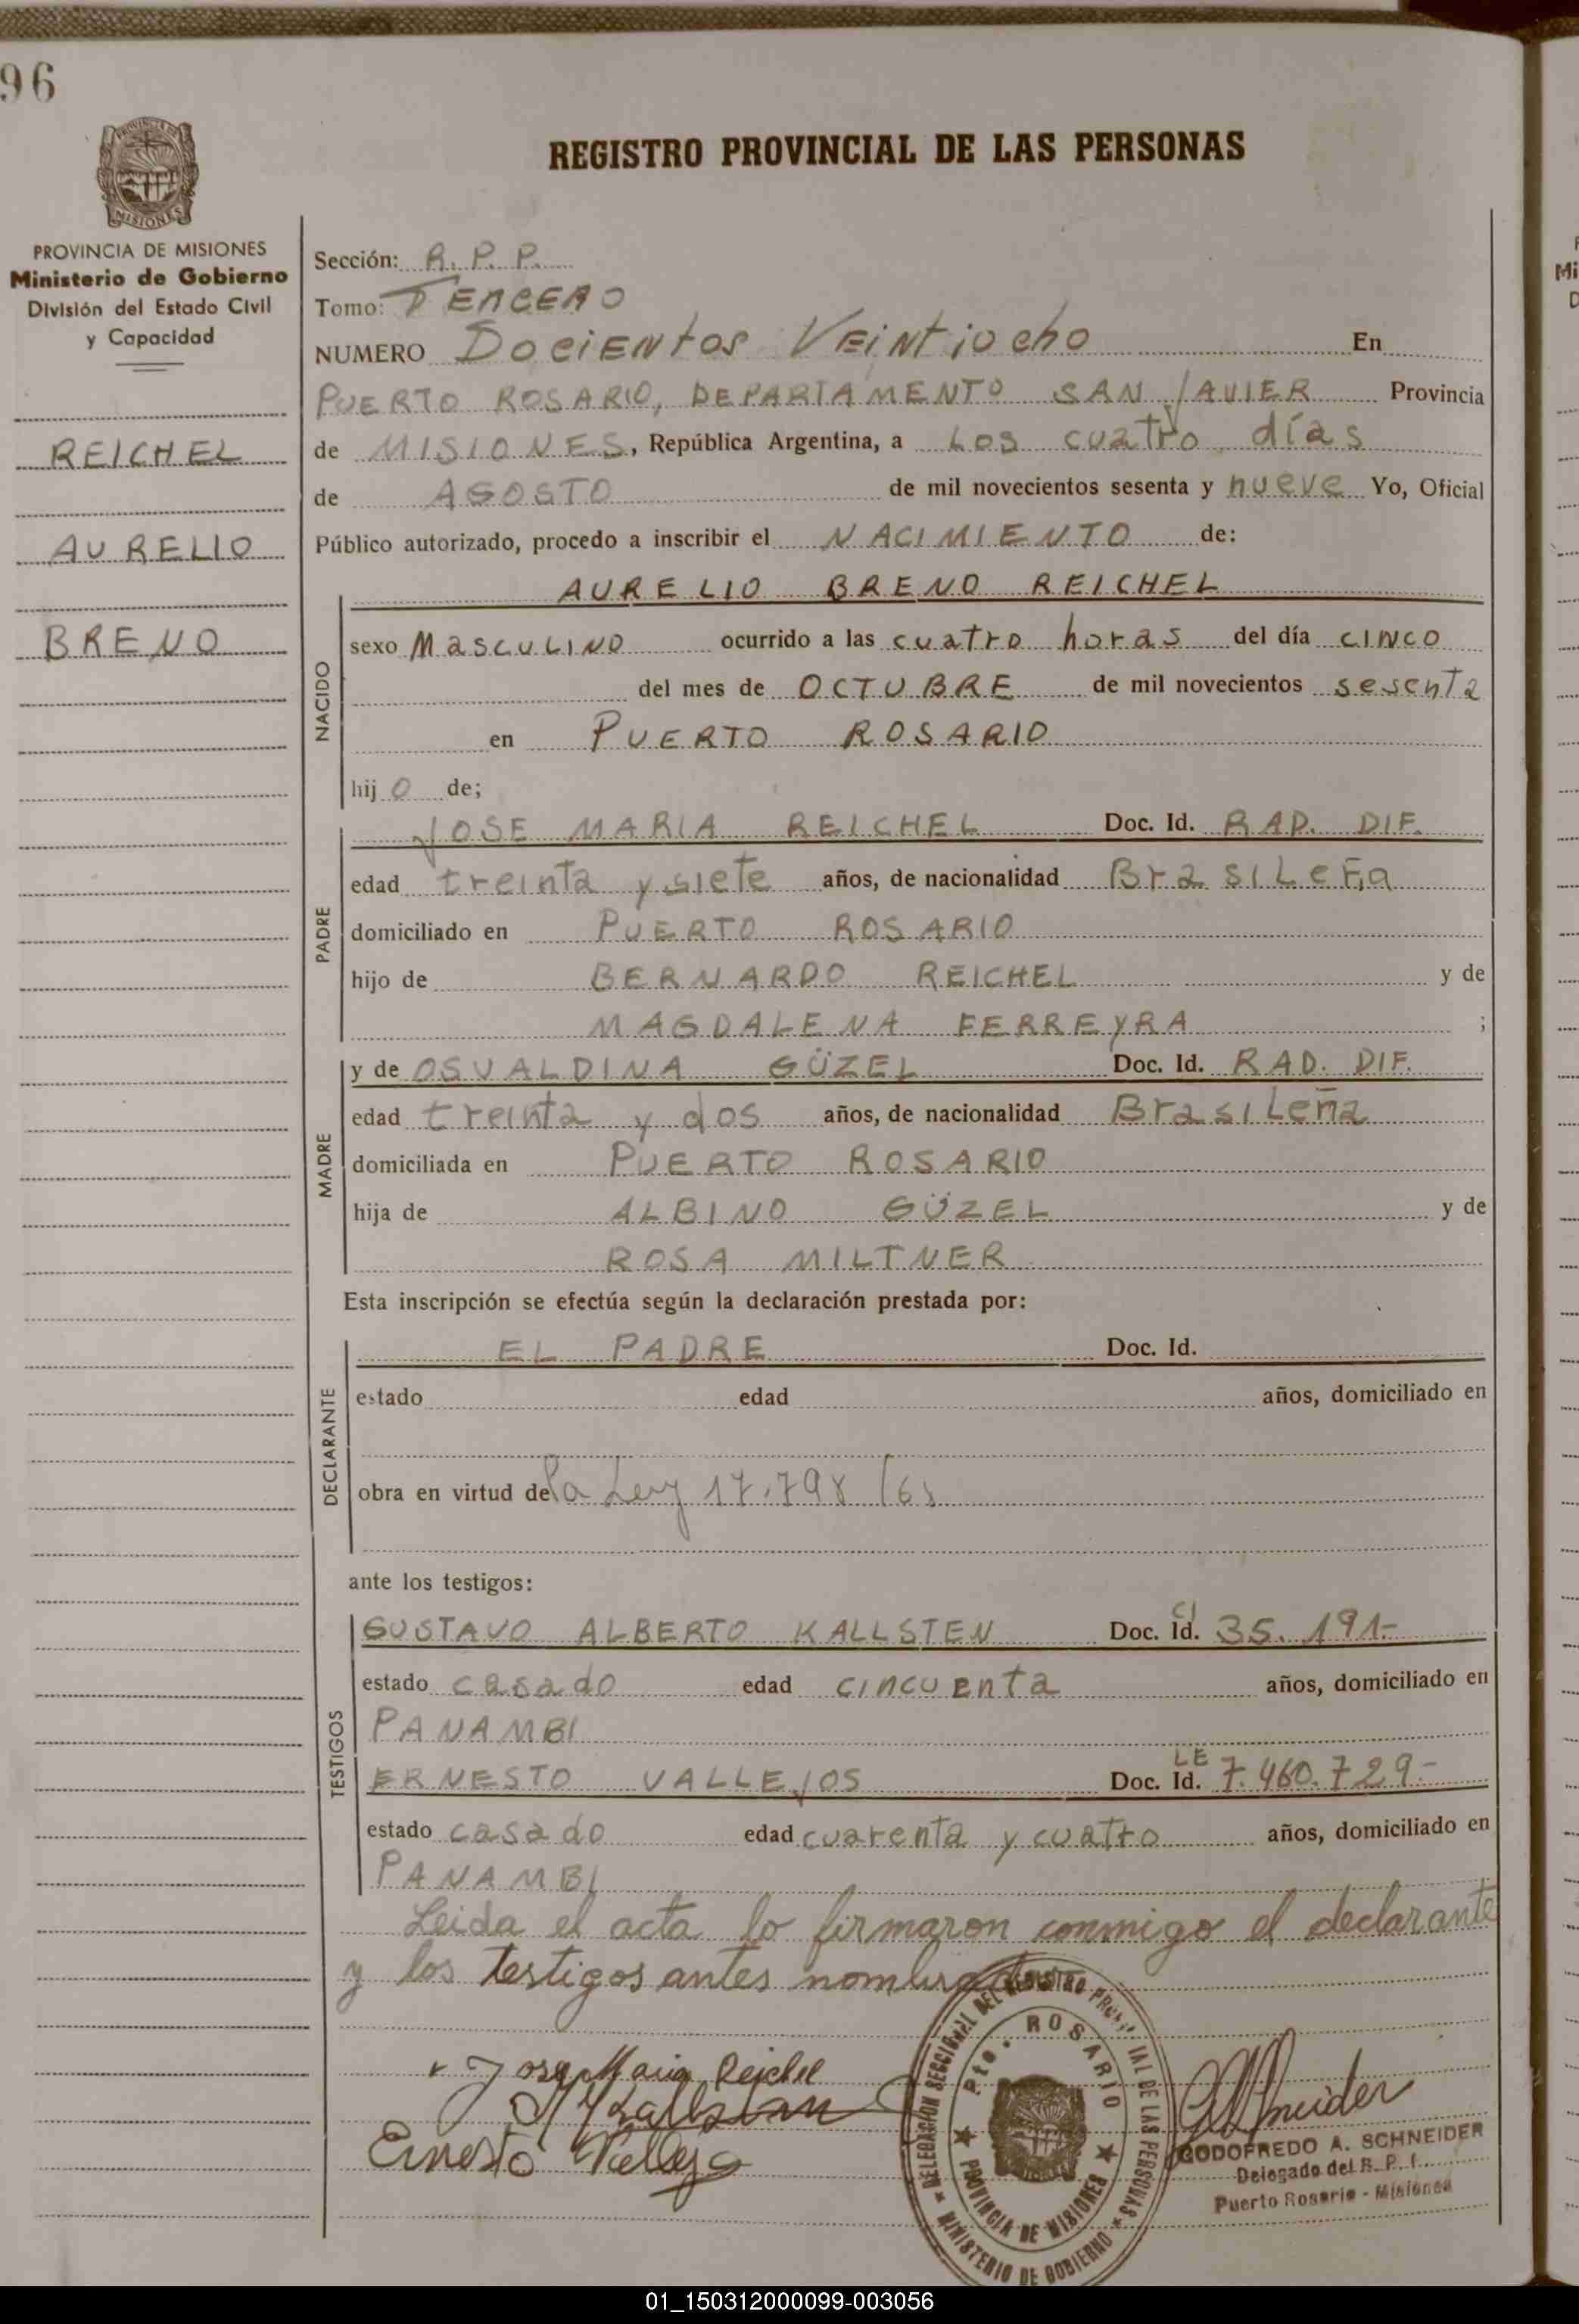 96
PROVINCIA DE
MISIONES
PROVINCIA DE MISIONES
Ministerio de Gobierno
División del Estado Civil
y Capacidad
REICHEL
AURELIO
BRENO
REGISTRO PROVINCIAL DE LAS PERSONAS
Sección: R. P. P.
Tomo: TERCERO
NUMERO Docientos Veintiocho En
PUERTO ROSARIO, DEPARTAMENTO SAN JAVIER Provincia
de MISIONES, República Argentina, a Los cuatro días
de AGOSTO de mil novecientos sesenta y nueve Yo, Oficial
Público autorizado, procedo a inscribir el NACIMIENTO de:
AURELIO BRENO REICHEL
NACIDO
sexo Masculino ocurrido a las cuatro horas del día cinco
del mes de OCTUBRE de mil novecientos sesenta
en PUERTO ROSARIO
hij o de;
PADRE
JOSE MARIA REICHEL Doc. Id. RAD. DIF.
edad treinta y siete años, de nacionalidad Brasileña
domiciliado en PUERTO ROSARIO
hijo de BERNARDO REICHEL y de
MAGDALENA FERREYRA ;
MADRE
y de OSVALDINA GÜZEL Doc. Id. RAD. DIF.
edad treinta y dos años, de nacionalidad Brasileña
domiciliada en PUERTO ROSARIO
hija de ALBINO GÜZEL y de
ROSA MILTNER
Esta inscripción se efectúa según la declaración prestada por:
DECLARANTE
EL PADRE Doc. Id.
estado edad años, domiciliado en
obra en virtud de la Ley 17.798/68
ante los testigos:
TESTIGOS
GUSTAVO ALBERTO KALLSTEN Doc. Id. CI 35.191.-
estado casado edad cincuenta años, domiciliado en
PANAMBI
ERNESTO VALLEJOS Doc. Id. LE 7.460.729.-
estado casado edad cuarenta y cuatro años, domiciliado en
PANAMBI
Leida el acta lo firmaron conmigo el declarante
y los testigos antes nombrados
Jose Maria Reichel
Ernesto Vallejo
DELEGACIÓN SECCIONAL DEL REGISTRO PROVINCIAL DE LAS PERSONAS
★ MINISTERIO DE GOBIERNO ★
Pto. ROSARIO
★ PROVINCIA DE MISIONES ★
GODOFREDO A. SCHNEIDER
Delegado del R. P. P.
Puerto Rosario - Misiones
01_150312000099-003056